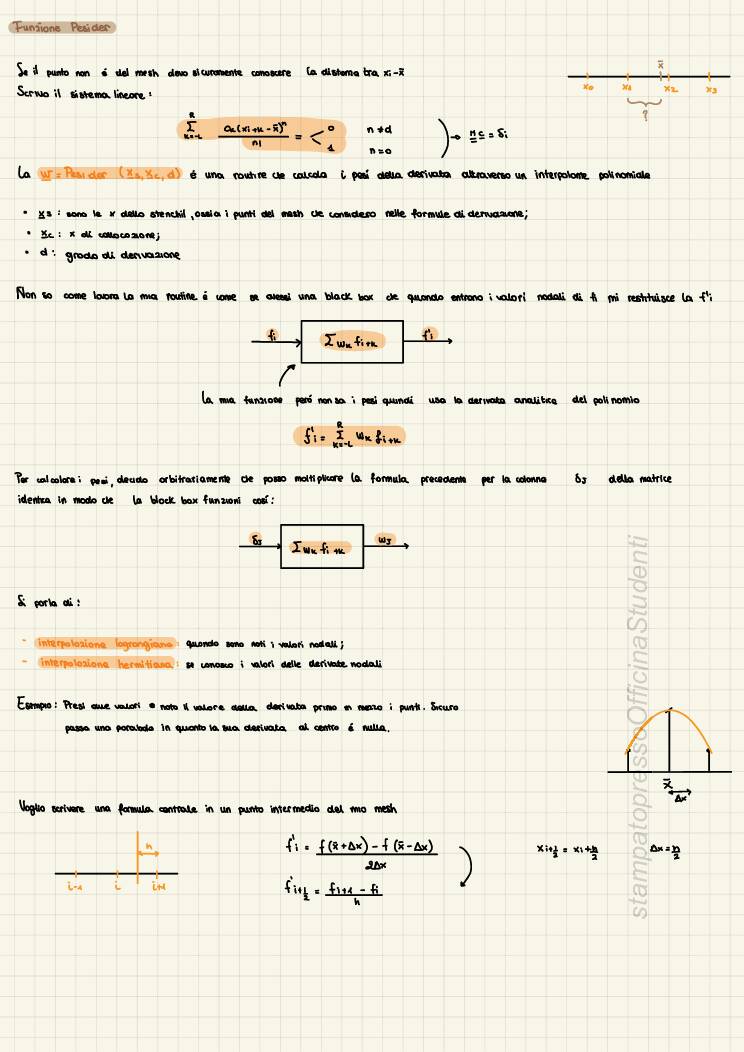 Funzione Pesider
Se il punto non é del mesh devo sicuramente conoscere la distanza tra xi-x̄
Scrivo il sistema lineare:
x̄
x0 x1 x2 x3
?
R Σ K=-L ak(xi+k - x̄)^n / n! = < 0 1
n≠d
n=0
→ M c = δi
La w = Pesider (xs, xc, d) é una routine che calcola i pesi della derivata attraverso un interpolante polinomiale
• xs : sono le x dello stenchil, ossia i punti del mesh che considero nelle formule di derivazione;
• xc : x di collocazione;
• d : grado di derivazione
Non so come lavora la mia routine é come se avessi una black box che quando entrano i valori nodali di fi mi restituisce la f'i
fi Σ wk fi+k f'i
La mia funzione peró non sa i pesi quindi uso la derivata analitica del polinomio
f'i = R Σ K=-L wk fi+k
Per calcolare i pesi, decido arbitrariamente che posso moltiplicare la formula precedente per la colonna δj della matrice
identza in modo che la black box funzioni cosí:
δj Σ wk fi+k wj
Si parla di:
- interpolazione lagrangiana: quando sono noti i valori nodali;
- interpolazione hermitiana: se conosco i valori delle derivate nodali
Esempio: Presi due valori e noto il valore della derivata primo in mezzo i punti. Sicuro
passa una parabola in quanto la sua derivata al centro é nulla.
x̄
Δx
Voglio scrivere una formula centrale in un punto intermedio del mio mesh
h
i-1 i i+1
f'i = f(x̄+Δx) - f(x̄-Δx) / 2Δx
f'i+1/2 = fi+1 - fi / h
xi+1/2 = xi+h/2 Δx = h/2
stampatopressoOfficinaStudenti